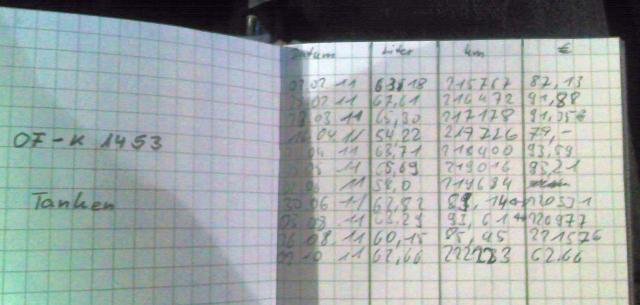 OF-K 1453
Tanken
Datum Liter km €
02.02 11 63,18 215767 87,13
02 11 67,61 216472 91,88
03 11 65,30 217178 91,35
04 11 54,22 217726 79,-
04 11 63,71 218400 93,59
11 63,69 219016 93,21
11 58,0
30 06 11 62,82 89,14 220331
03 09 11 63,29 93,61 220977
26 08 11 60,15 85,45 221576
10 11 62,66 62,66